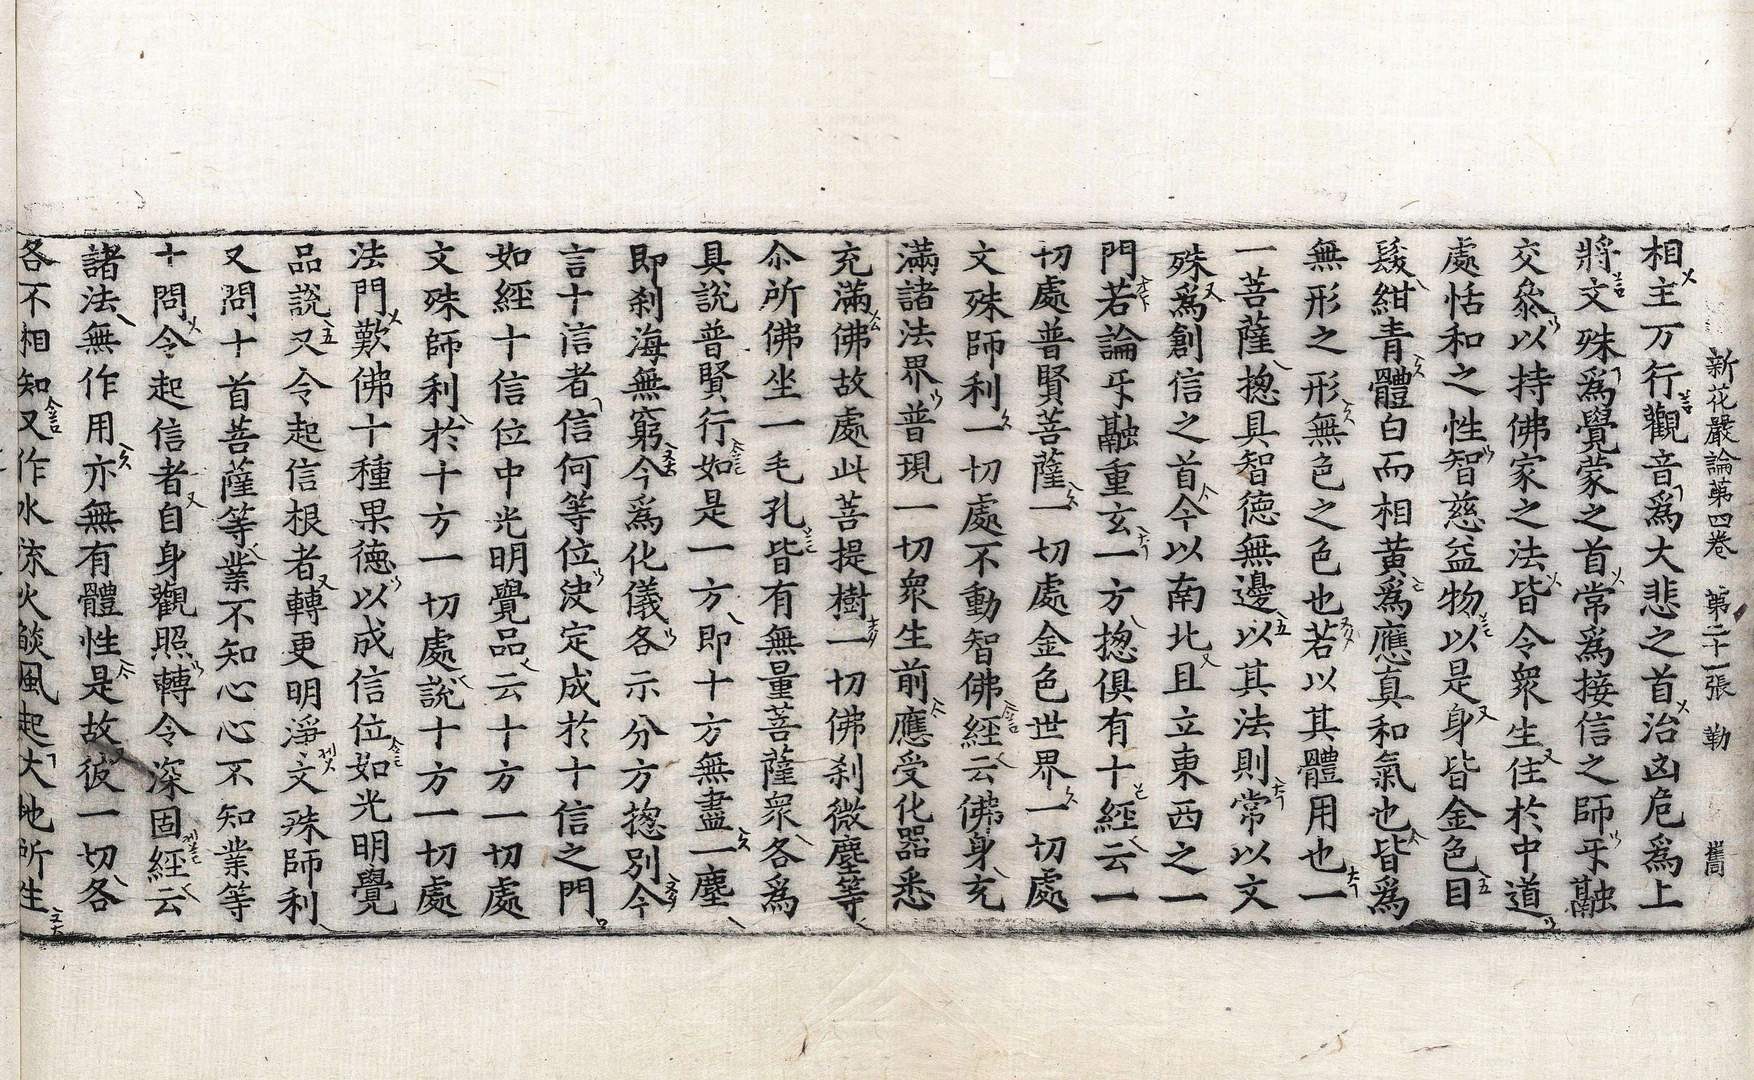 新花嚴論第四卷 第二十一張 勒
相主万行觀音爲大悲之首治凶危爲上
將文殊爲覺蒙之首常爲接信之師㸦融
交叅以持佛家之法皆令衆生住於中道
處恬和之性智慈益物以是身皆金色目
髮紺青體白而相黃爲應真和氣也皆爲
無形之形無色之色也若以其體用也一
一菩薩揔具智德無邊以其法則常以文
殊爲創信之首今以南北且立東西之一
門若論㸦融重玄一方揔俱有十經云一
切處普賢菩薩一切處金色世界一切處
文殊師利一切處不動智佛經云佛身充
滿諸法界普現一切衆生前應受化器悉
充滿佛故處此菩提樹一切佛刹微塵等
尒所佛坐一毛孔皆有無量菩薩衆各爲
具說普賢行如是一方即十方無盡一塵
即刹海無窮今爲化儀各示分方揔別今
言十信者信何等位決定成於十信之門
如經十信位中光明覺品云十方一切處
文殊師利於十方一切處說十方一切處
法門歎佛十種果德以成信位如光明覺
品說又令起信根者轉更明淨文殊師利
又問十首菩薩等業不知心心不知業等
十問令起信者自身觀照轉令深固經云
諸法無作用亦無有體性是故彼一切各
各不相知又作水流火𦦨風起大地所生